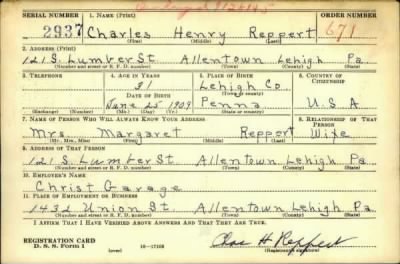 SERIAL NUMBER 1. NAME (Print) ORDER NUMBER
2937 Charles Henry Reppert 671
(First) (Middle) (Last)
2. ADDRESS (Print)
121 S. Lumber St. Allentown Lehigh Pa.
(Number and street or R. F. D. number) (Town) (County) (State)
3. TELEPHONE 4. AGE IN YEARS 5. PLACE OF BIRTH 6. COUNTRY OF CITIZENSHIP
31 Lehigh Co
DATE OF BIRTH (Town or county)
June 25 1909 Penna U.S.A
(Exchange) (Number) (Mo.) (Day) (Yr.) (State or country)
7. NAME OF PERSON WHO WILL ALWAYS KNOW YOUR ADDRESS 8. RELATIONSHIP OF THAT PERSON
Mrs. Margaret Reppert Wife
(Mr., Mrs., Miss) (First) (Middle) (Last)
9. ADDRESS OF THAT PERSON
121 S. Lumber St. Allentown Lehigh Pa.
(Number and street or R. F. D. number) (Town) (County) (State)
10. EMPLOYER'S NAME
Christ Garage
11. PLACE OF EMPLOYMENT OR BUSINESS
1432 Union St. Allentown Lehigh Pa
(Number and street or R. F. D. number) (Town) (County) (State)
I AFFIRM THAT I HAVE VERIFIED ABOVE ANSWERS AND THAT THEY ARE TRUE.
REGISTRATION CARD
D. S. S. Form 1 (over) Chas H. Reppert
(Registrant's signature)